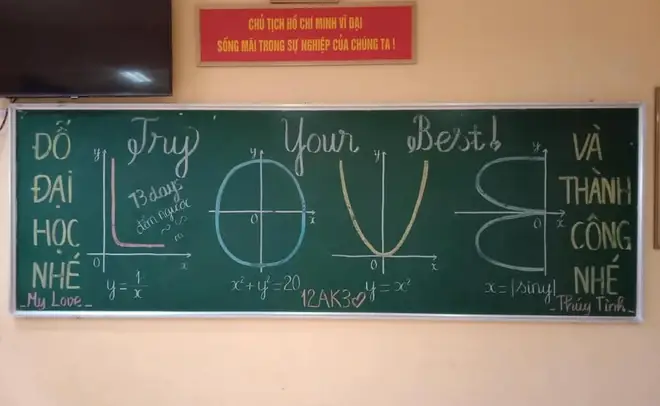 CHỦ TỊCH HỒ CHÍ MINH VĨ ĐẠI
SỐNG MÃI TRONG SỰ NGHIỆP CỦA CHÚNG TA !
Try Your Best!
ĐỖ
ĐẠI
HỌC
NHÉ
_My Love_
y
O
x
y = 1/x
73 days
đếm ngược
y
O
x
x² + y² = 20
12AK3♡
y
O
x
y = x²
y
O
x
x = |siny|
VÀ
THÀNH
CÔNG
NHÉ
_Thúy Tình_